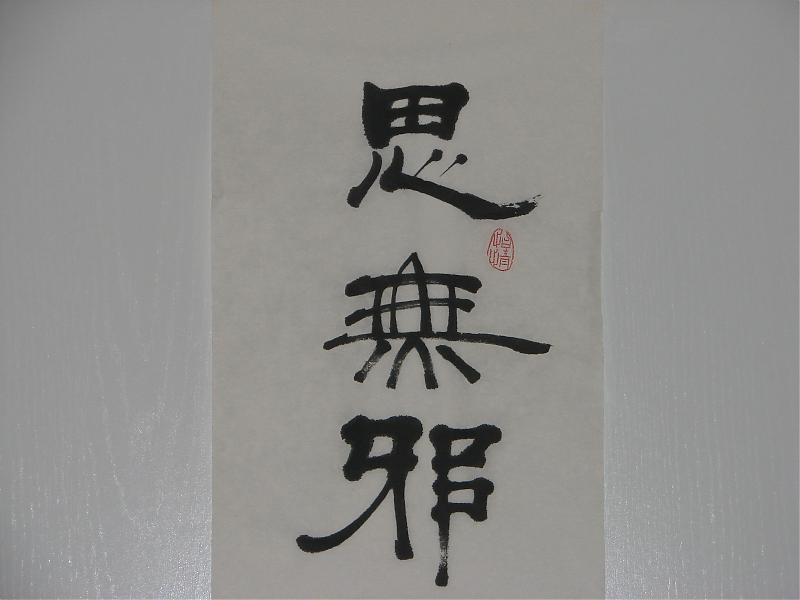 思無邪